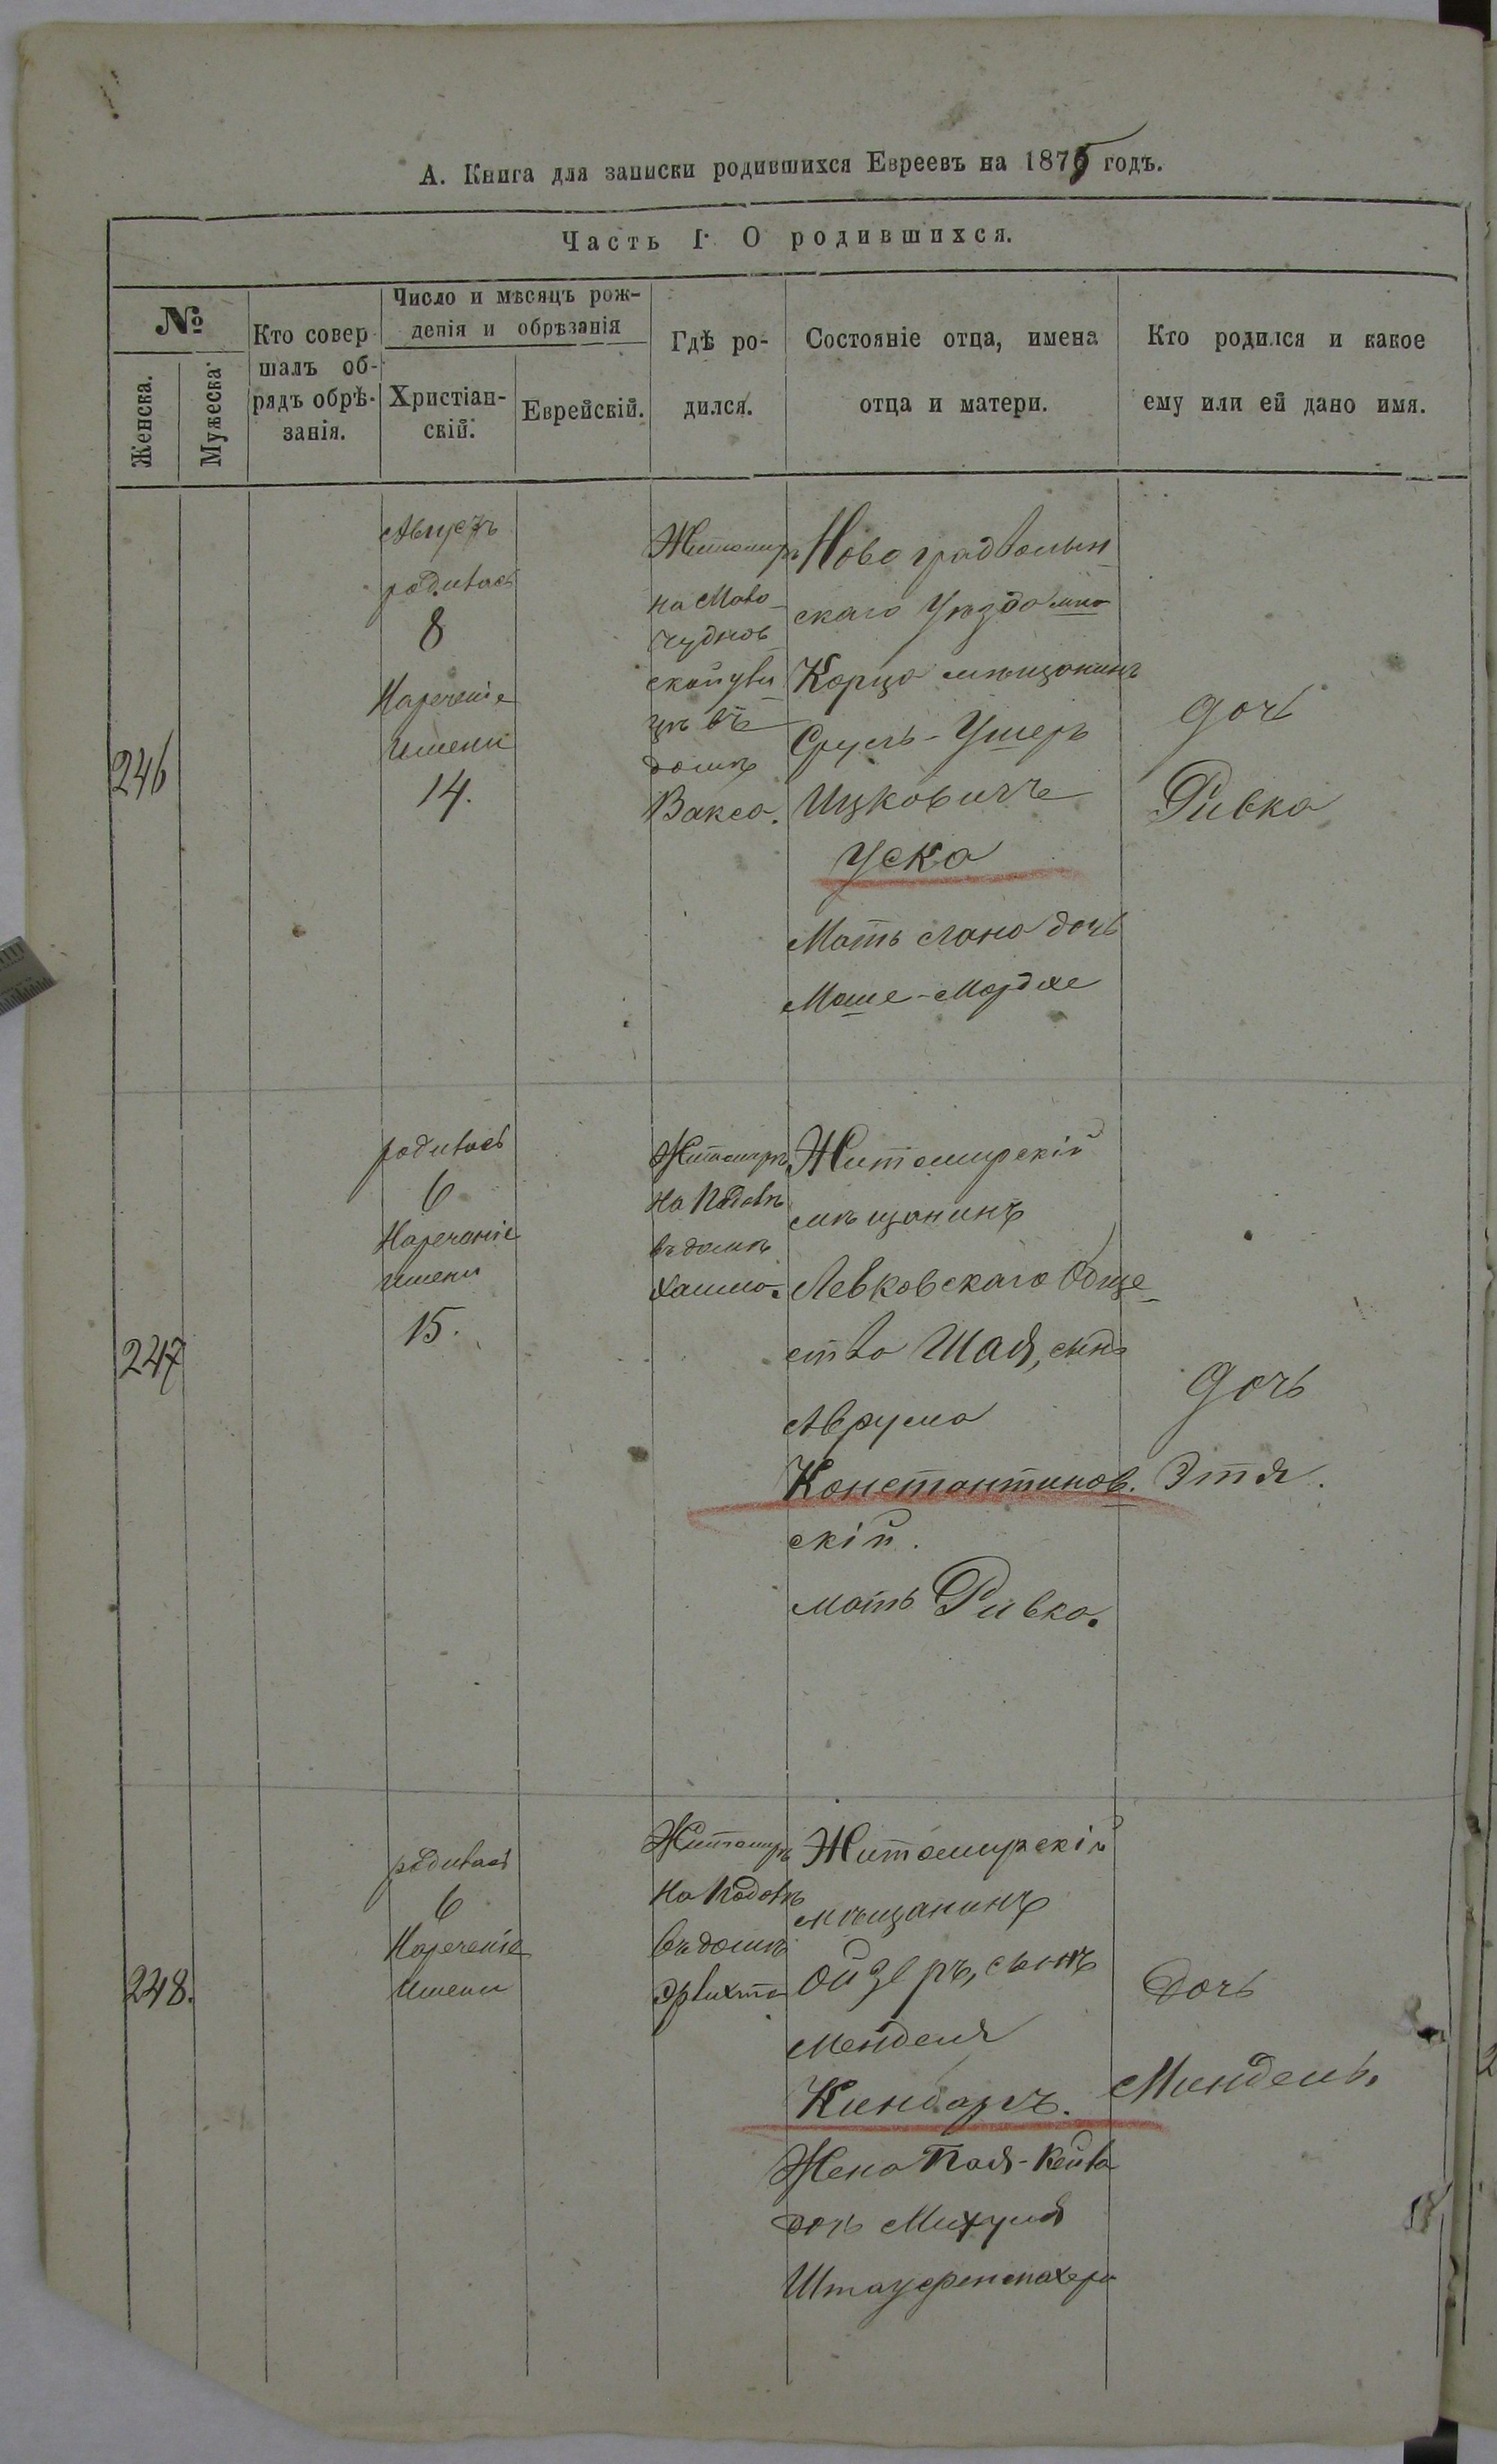 А. Книга для записки родившихся Евреевъ на 1875 годъ.
Часть I. О родившихся.
№
Женска.
Мужеска.
Кто совер
шалъ об-
рядъ обрѣ-
занія.
Число и мѣсяцъ рож-
денія и обрѣзанія
Христіан-
скій.
Еврейскій.
Гдѣ ро-
дился.
Состояніе отца, имена
отца и матери.
Кто родился и какое
ему или ей дано имя.
246
Августъ
родилась
8
Нареченіе
имени
14.
Житомиръ
на Мало-
Чуднов
ской ули
цѣ въ
домѣ
Вакса.
Новоградволын
скаго Уѣзда мѣс
Корца мѣщанинъ
Сруль-Ушеръ
Ицковичъ
Уска
Мать Хана дочь
Моше-Мордхе
дочь
Ривка
247
родилась
6
Нареченіе
имени
15.
Житомиръ
на Подолѣ
въ домѣ
Житомирскій
мѣщанинъ
Левковскаго Обще-
ства Шая, сынъ
Аврума
Константинов.
скій.
мать Ривка.
дочь
Этя.
248.
родилась
6
Нареченіе
имени
Житомиръ
на Подолѣ
въ домѣ
Эрлихта
Житомирскій
мѣщанинъ
Ойзеръ, сынъ
Менделя
Киндаръ.
Жена Пая-Кейла
дочь Михуля
дочь
Миндель.